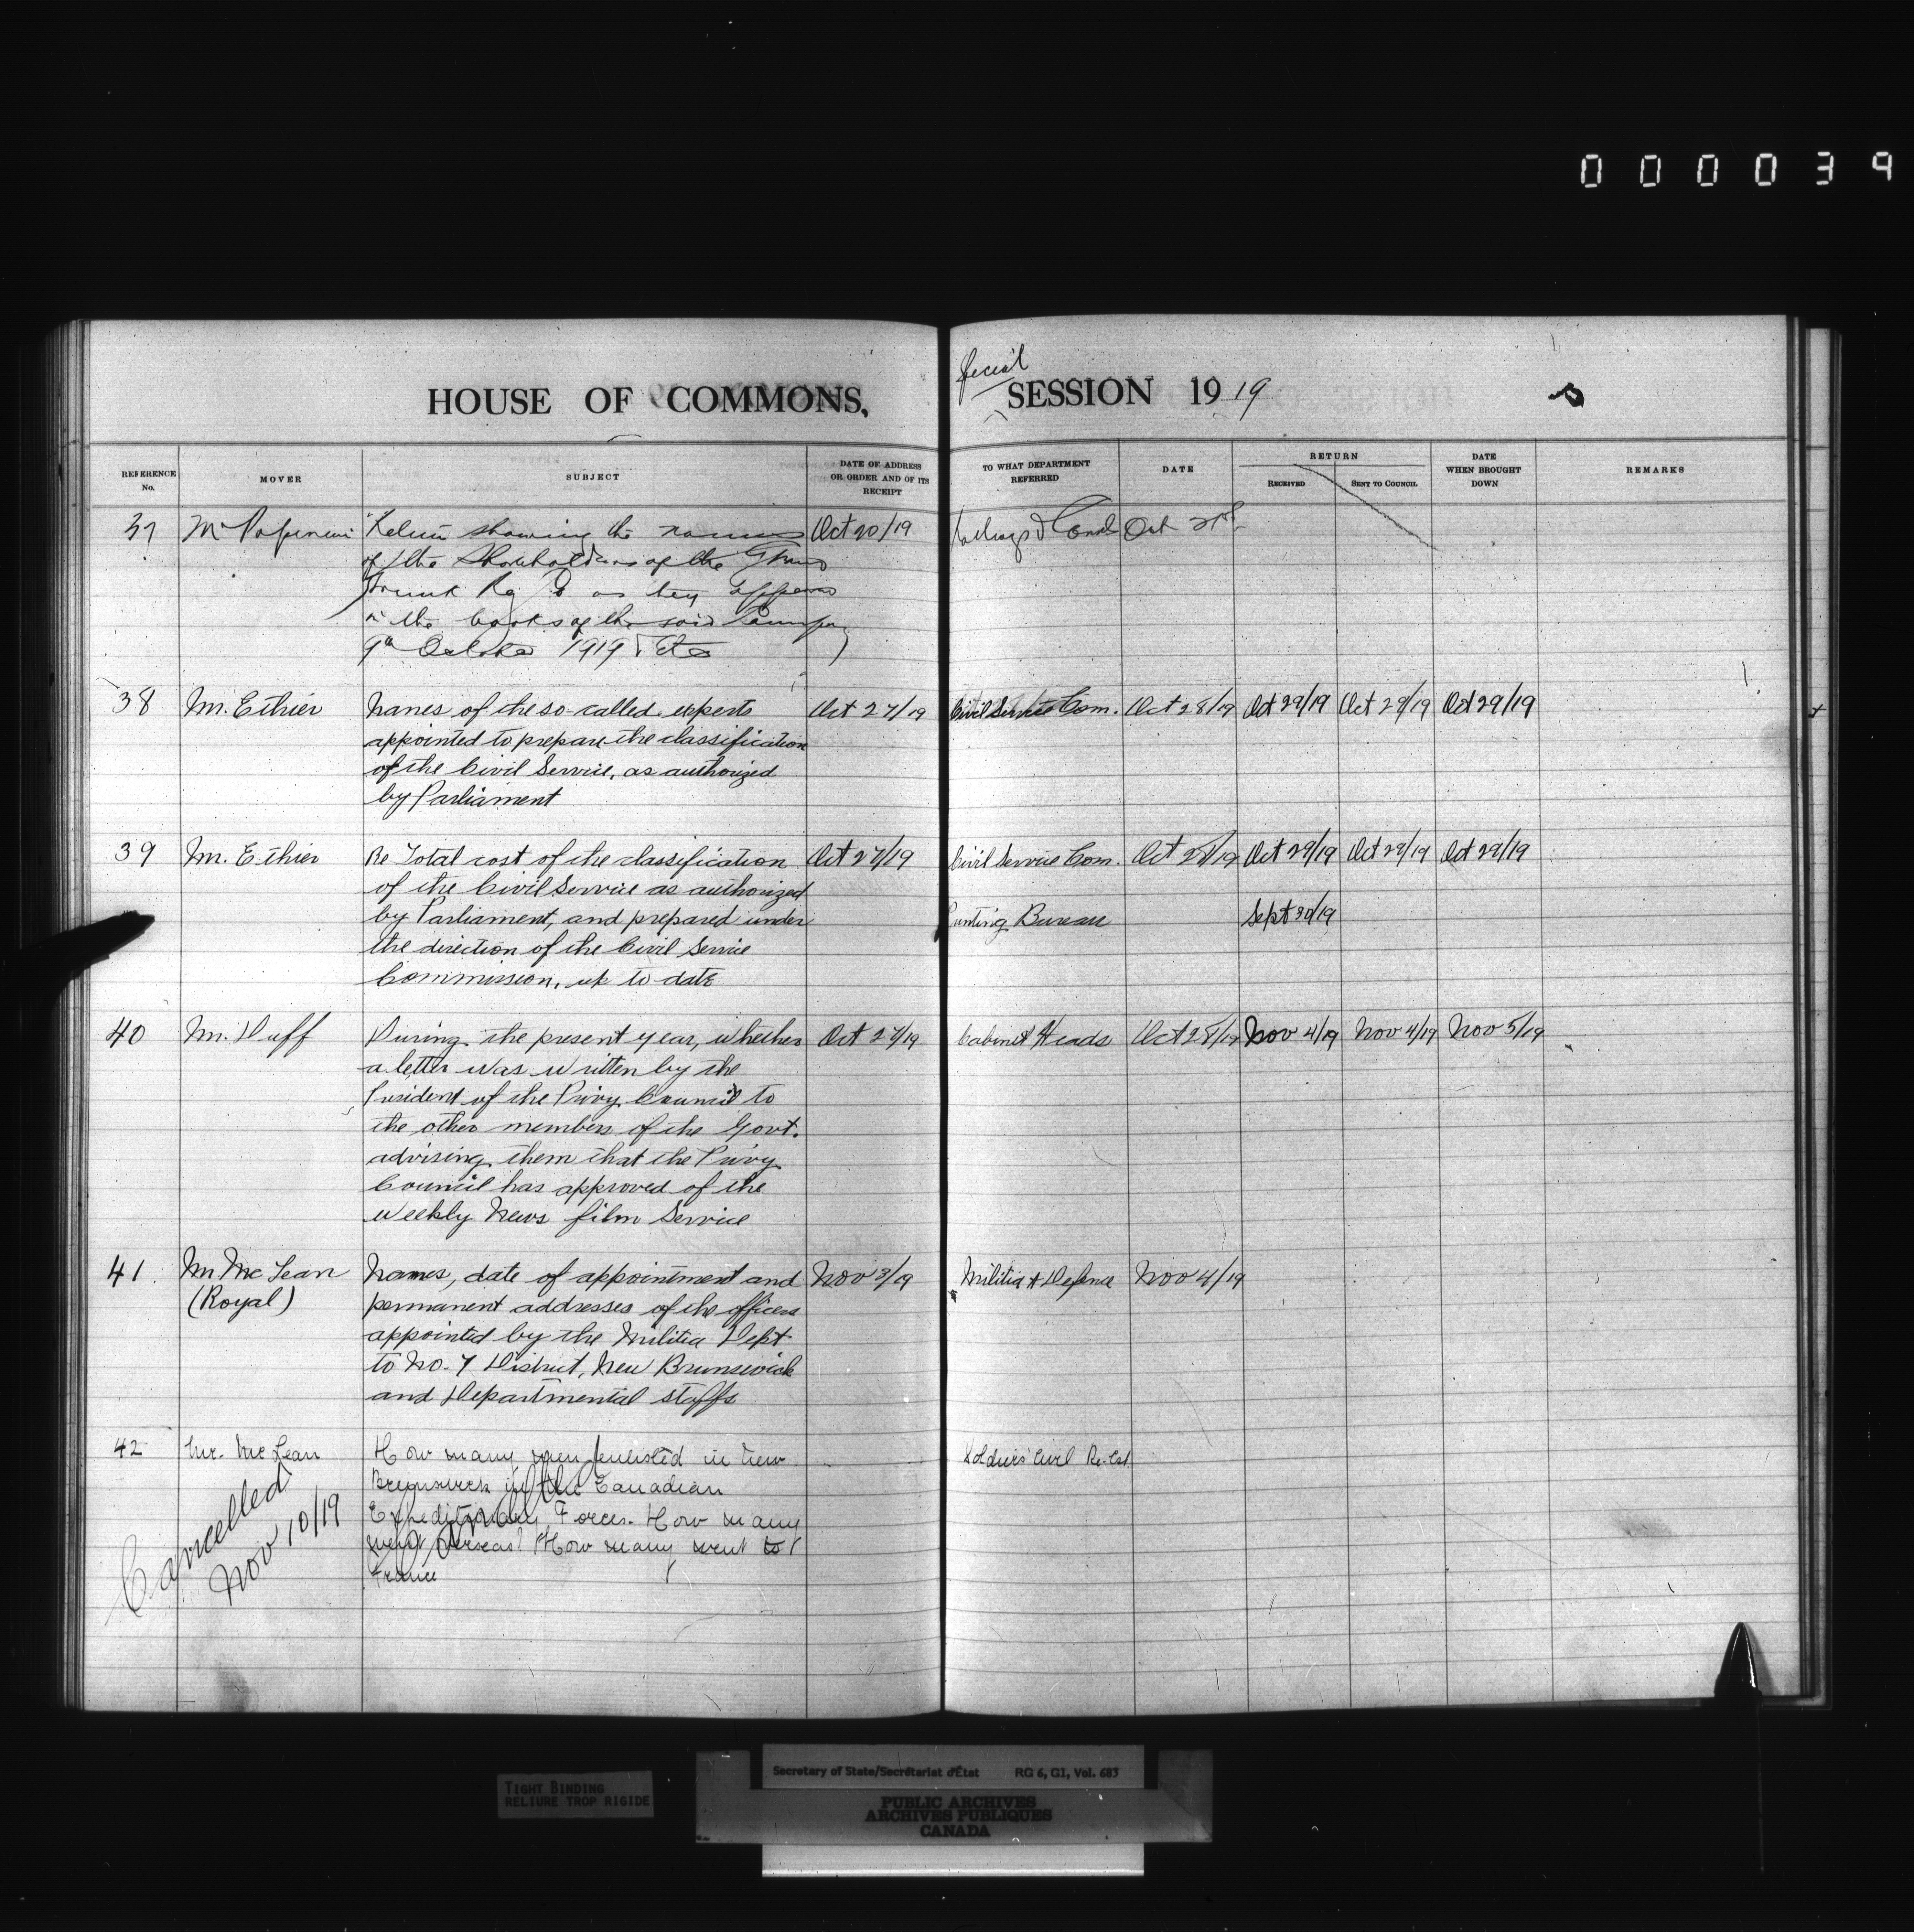 000039
HOUSE OF COMMONS, Special SESSION 1919
REFERENCE No. MOVER SUBJECT DATE OF ADDRESS OR ORDER AND OF ITS RECEIPT TO WHAT DEPARTMENT REFERRED DATE RETURN RECEIVED SENT TO COUNCIL DATE WHEN BROUGHT DOWN REMARKS
37 Mr showing the names Oct 20/19 Oct 21st
of the Shareholders of the Grand
Trunk Ry Co as they appear
in the books of the said Company
9th October 1919 Etc
38 Mr. Ethier Names of the so-called experts Oct 27/19 Civil Service Com. Oct 28/19 Oct 29/19 Oct 29/19 Oct 29/19
appointed to prepare the classification
of the Civil Service, as authorized
by Parliament
39 Mr. Ethier Re Total cost of the classification Oct 27/19 Civil Service Com. Oct 28/19 Oct 29/19 Oct 29/19 Oct 29/19
of the Civil Service as authorized
by Parliament, and prepared under Printing Bureau Sept 30/19
the direction of the Civil Service
Commission, up to date
40 Mr. Duff During the present year, whether Oct 27/19 Cabinet Heads Oct 28/19 Nov 4/19 Nov 4/19 Nov 5/19
a letter was written by the
President of the Privy Council to
the other members of the Govt.
advising them that the Privy
Council has approved of the
Weekly News film Service
41. Mr McLean Names, date of appointment and Nov 3/19 Militia & Defence Nov 4/19
(Royal) permanent addresses of the officers
appointed by the Militia Dept
to No. 7 District, New Brunswick
and Departmental staffs
42 Mr. McLean How many men enlisted in New Soldiers' Civil Re-Est.
Brunswick in the Canadian
Expeditionary Forces. How many
went overseas? How many went to
France
Cancelled
Nov 10/19
Secretary of State/Secrétariat d'État RG 6, G1, Vol. 683
TIGHT BINDING
RELIURE TROP RIGIDE
PUBLIC ARCHIVES
ARCHIVES PUBLIQUES
CANADA